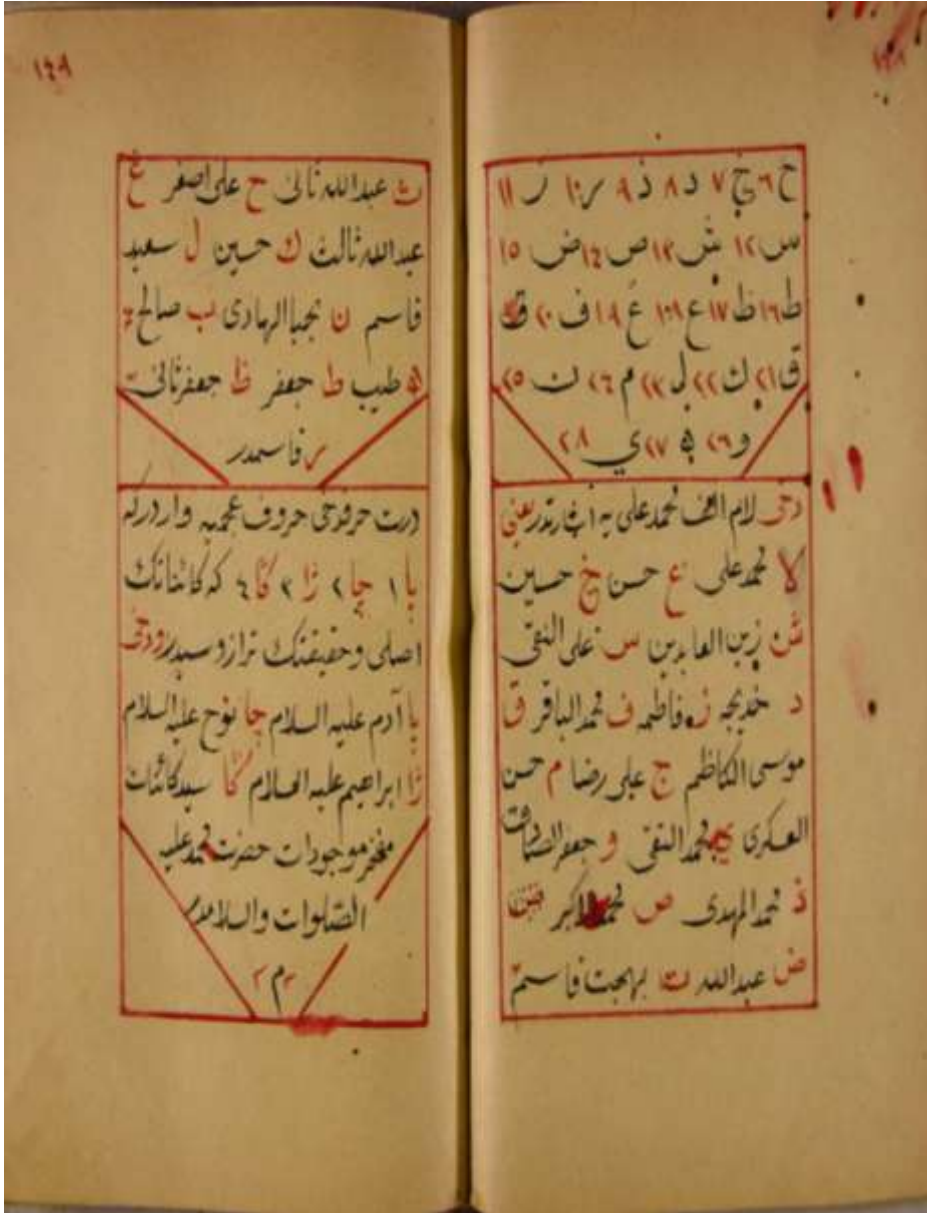 ١٤٨
ح ٦ خ ٧ د ٨ ذ ٩ ر ١٠ ز ١١
س ١٢ ش ١٣ ص ١٤ ض ١٥
ط ١٦ ظ ١٧ ع ١٨ غ ١٩ ف ٢٠
ق ٢١ ك ٢٢ ل ٢٣ م ٢٤ ن ٢٥
و ٢٦ ه ٢٧ ي ٢٨
دخى لام الف محمد على يه اشارتدر يعنى
لا محمد على ع حسن خ حسين
ش زين العابدين س على النقى
د خديجه ز فاطمه ف محمد الباقر ق
موسى الكاظم ج على رضا م حسن
العسكرى محمد التقى و جعفر الصادق
ذ محمد المهدى ص محمد الاكبر
ض عبد الله ث بهجت قاسم
١٤٩
ث عبد الله ثانى ح على اصغر غ
عبد الله ثالث ك حسين ل سعيد
قاسم ن الهادى ب صالح
ه طيب ط جعفر ظ جعفر ثانى
ر قاسمدر
درت حرفدخى حروف عجميه واردركه
پا ١ چا ٢ ژا ٣ گا ٤ كه كائناتك
اصلى وحقيقتك ترازوسيدر ودخى
پا آدم عليه السلام چا نوح عليه السلام
ژا ابراهيم عليه السلام گا سيد كائنات
مفخر موجودات حضرت محمد عليه
الصلوات والسلامدر
م